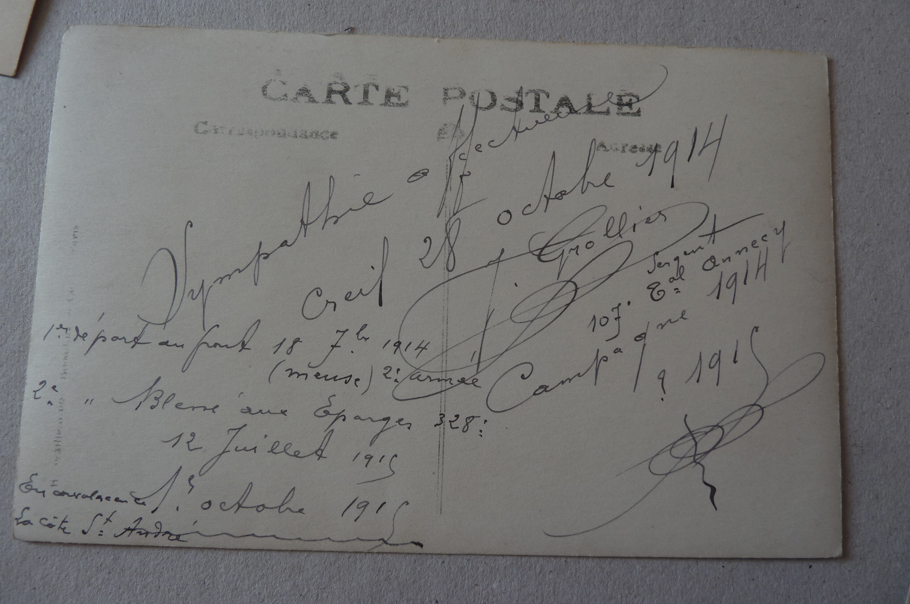 CARTE POSTALE
Correspondance
Adresse
Sympathie affectueuse
Creil 28 octobre 1914
J. Grollier
Sergent
107e Eal Annecy
Campagne 1914
à 1915
1er départ au front 18 7bre 1914
(meuse) 2e armée
2e " Blessé aux Eparges 328e
12 Juillet 1915
En convalescence 1er octobre 1915
La Côte St André